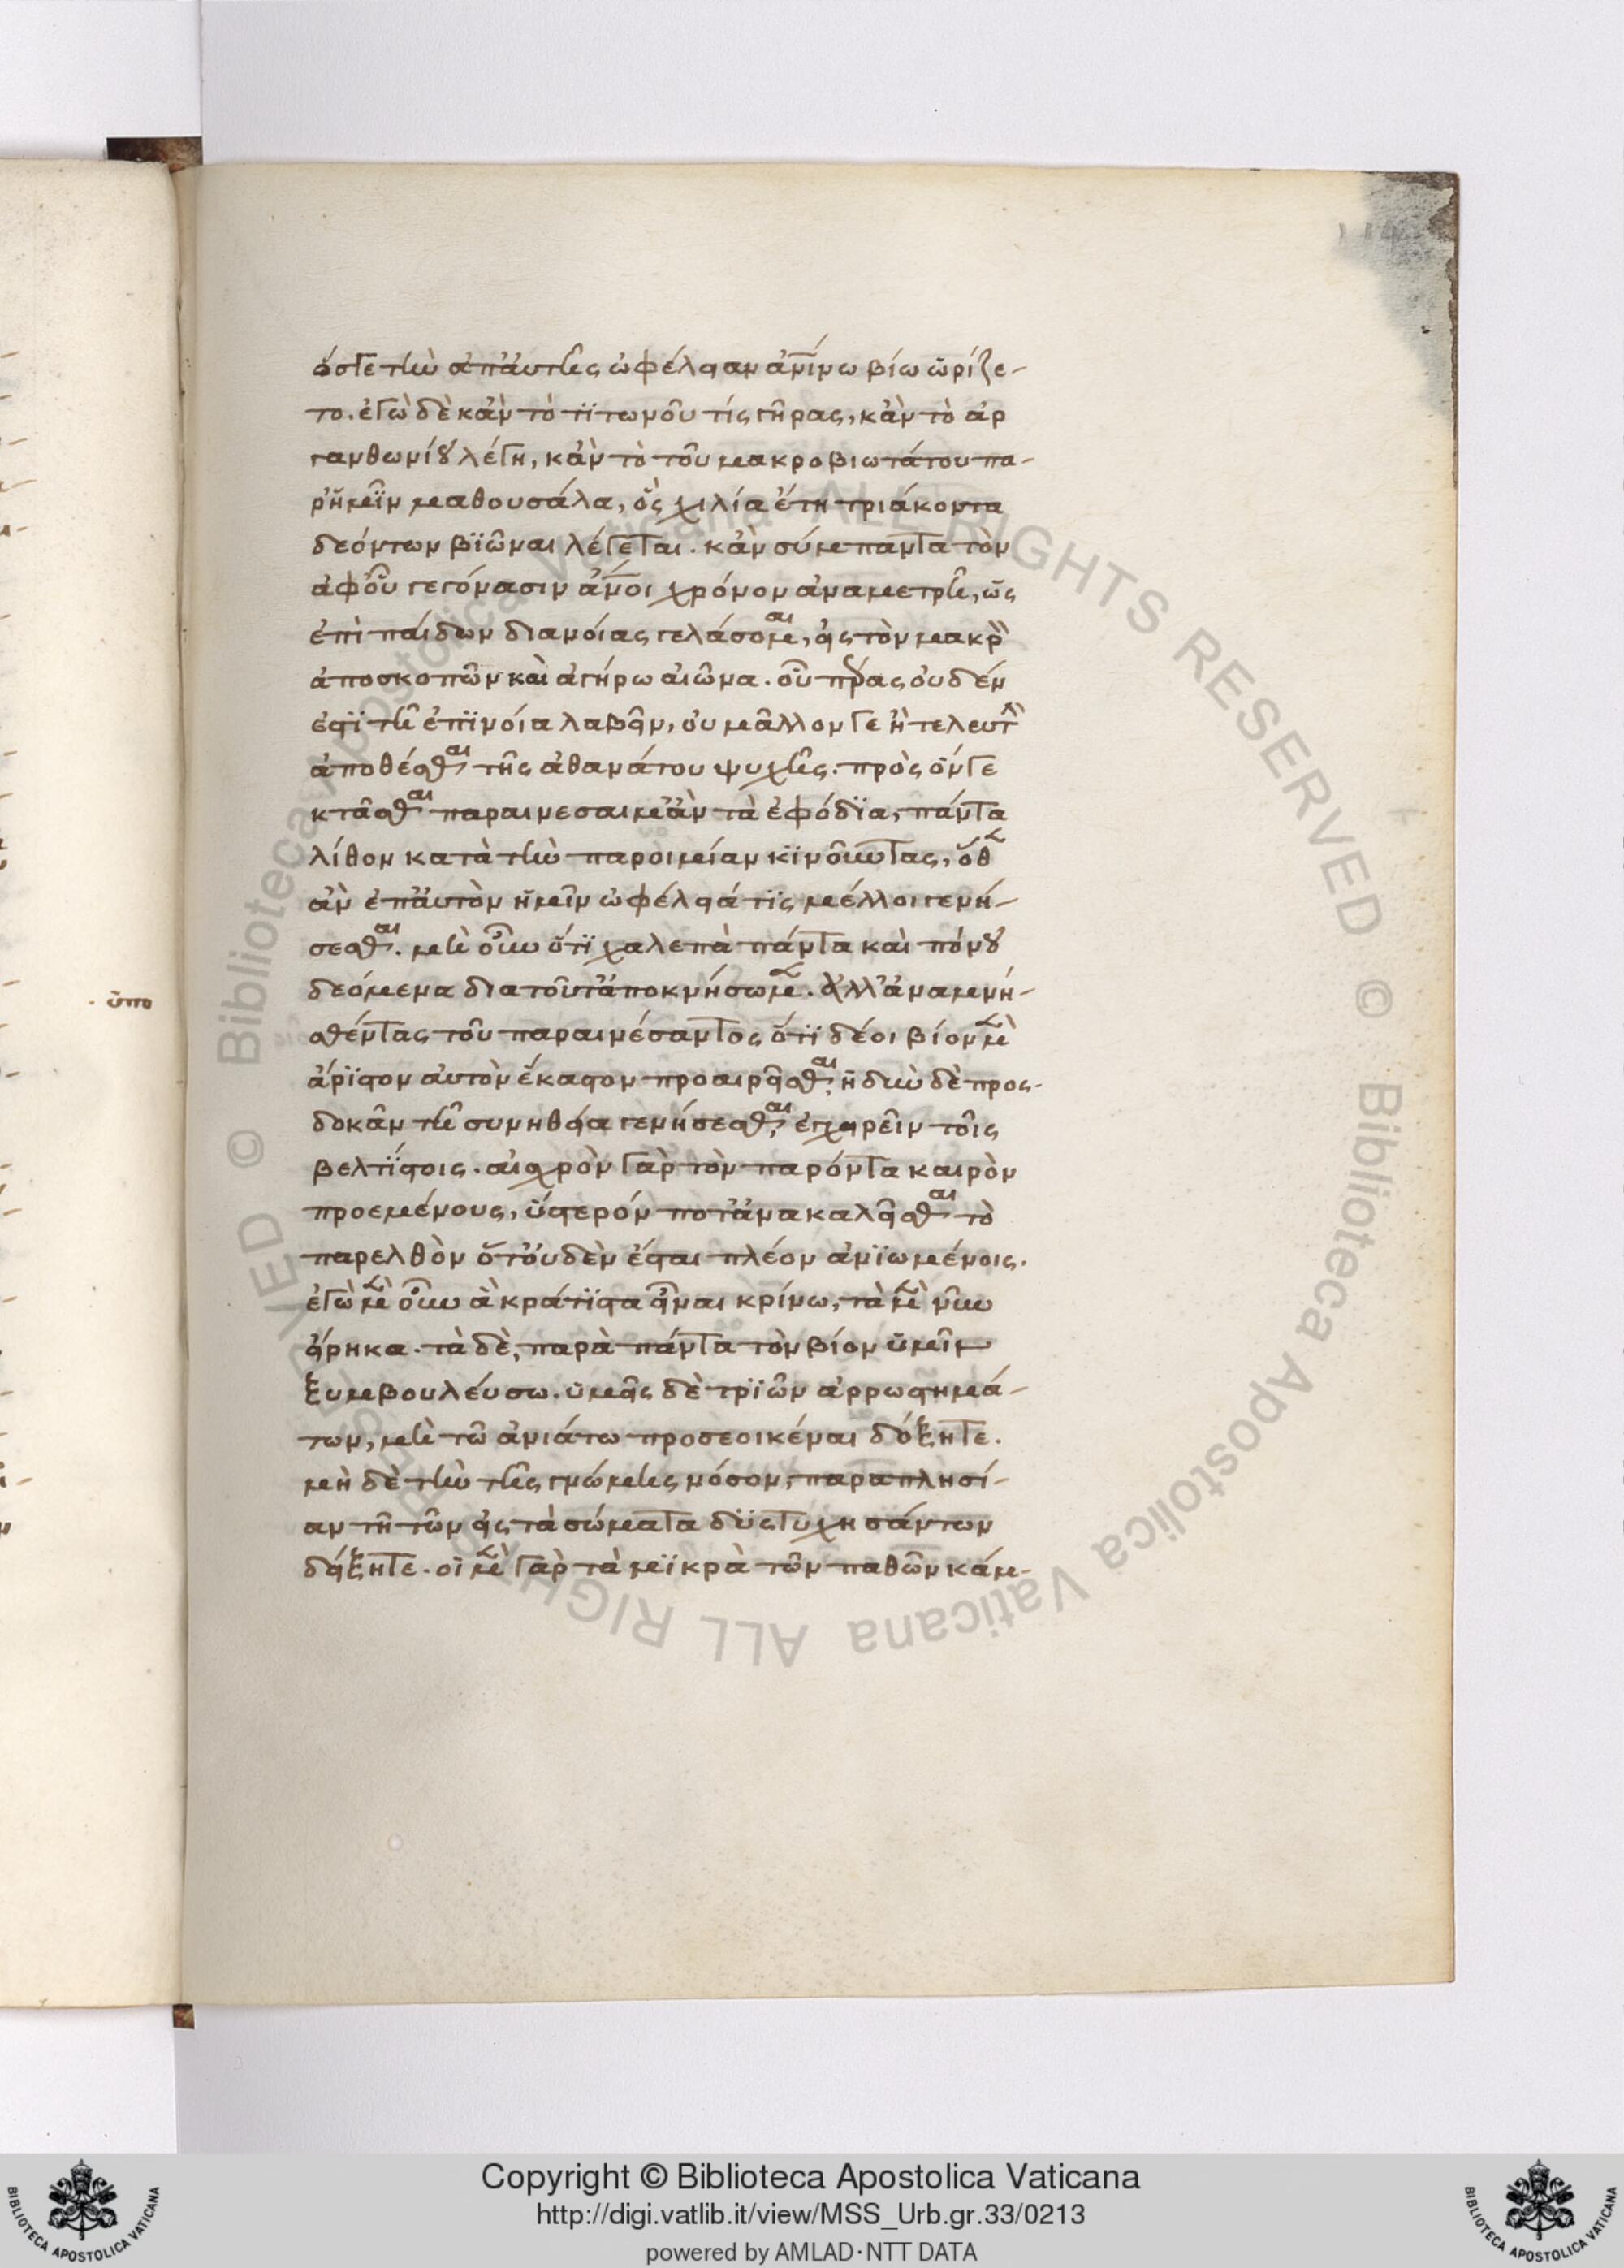 όστε τὴν ἁπάντης ὠφέλειαν ἀνίνω βίω ὡρίζε-
το. ἐγὼ δὲ κἂν τὸ τϊτωνοῦ τίς γῆρας, κἂν τὸ ἀρ
γανθωνίου λέγη, κἂν τὸ τοῦ μακροβιωτάτου πα-
ρ' ἡμῖν μαθουσάλα, ὃς χιλία ἔτη τριάκοντα
δεόντων βϊῶναι λέγεται. κἂν σύμπαντα τὸν
ἀφ' οὗ γεγόνασιν ἄνοι χρόνον ἀναμετρῆ, ὡς
ἐπὶ παίδων διανοίας γελάσομαι, εἰς τὸν μακρὸν
ἀποσκοπῶν καὶ ἀγήρω αἰῶνα. οὗ πέρας οὐδέν
ἐστϊ τῆ ἐπϊνοία λαβεῖν, οὐ μᾶλλόν γε ἢ τελευτὴν
ὑποθέσθαι τῆς ἀθανάτου ψυχῆς. πρὸς ὅν γε
κτᾶσθαι παραινέσαιμ' ἂν τὰ ἐφόδϊα, πάντα
λίθον κατὰ τὴν παροιμίαν κϊνοῦντας, ὅθεν
ἂν ἐπ' αὐτὸν ἡμῖν ὠφέλειά τϊς μέλλοι γενή-
σεσθαι. μὴ οὖν ὅτϊ χαλεπὰ πάντα καὶ πόνου
δεόμενα διὰ τοῦτ' ἀποκνήσωμεν. ἀλλ' ἀναμνη-
σθέντας τοῦ παραινέσαντος ὅτϊ δέοι βίον μὲν
ἄρϊστον αὐτὸν ἕκαστον προαιρεῖσθαι, ἡδὺν δὲ προς-
δοκᾶν τῆ συνηθεία γενήσεσθαι, ἐγχειρεῖν τοῖς
βελτϊστοις. αἰσχρὸν γὰρ τὸν παρόντα καιρὸν
προεμένους, ὕστερόν ποτ' ἀνακαλεῖσθαι τὸ
παρελθὸν ὅτ' οὐδὲν ἔσται πλέον ἀνϊωμένοις.
ἐγὼ μὲν οὖν ἃ κράτϊστα εἶναι κρίνω, τὰ μὲν νῦν
εἴρηκα. τὰ δὲ, παρὰ πάντα τὸν βίον ὑμῖν
ξυμβουλεύσω. ὑμεῖς δὲ τρϊῶν ἀρρωστημά-
των, μὴ τῶ ἀνιάτω προσεοικέναι δόξητε.
μὴ δὲ τὴν τῆς γνώμης νόσον, παραπλησί-
αν τῆ τῶν εἰς τὰ σώματα δϋςτυχησάντων
δείξητε. οἱ μὲν γὰρ τὰ μϊκρὰ τῶν παθῶν κάμ-
· ὑπο
Copyright © Biblioteca Apostolica Vaticana
http://digi.vatlib.it/view/MSS_Urb.gr.33/0213
powered by AMLAD·NTT DATA